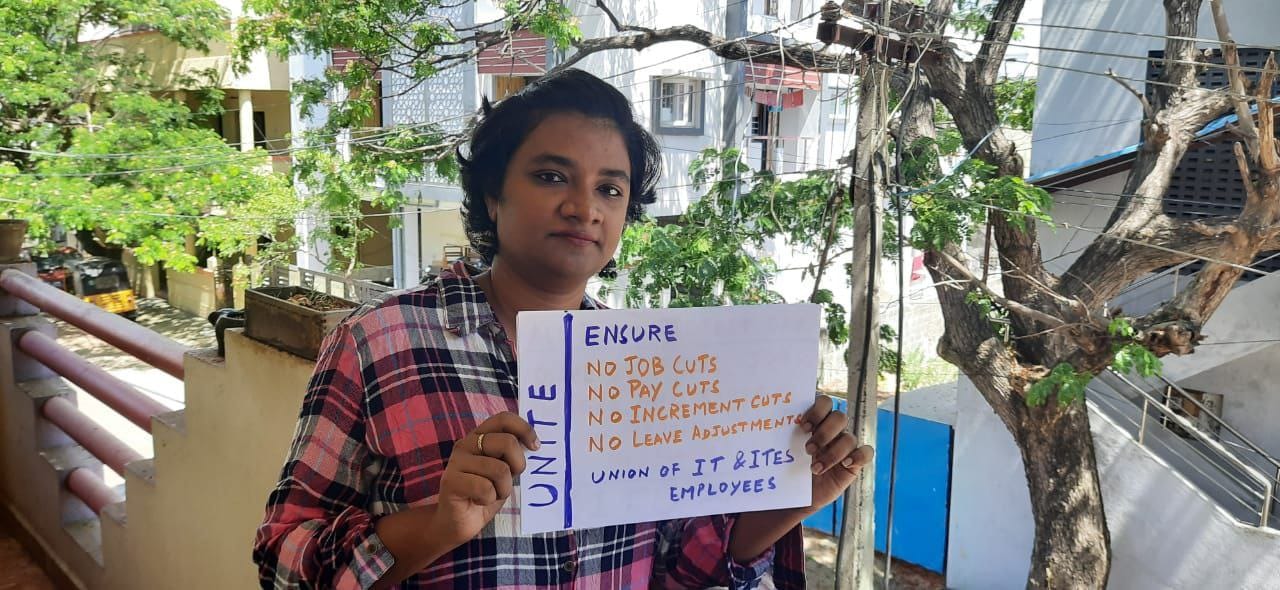 UNITE
ENSURE
NO JOB CUTS
NO PAY CUTS
NO INCREMENT CUTS
NO LEAVE ADJUSTMENTS
UNION OF IT & ITES
EMPLOYEES